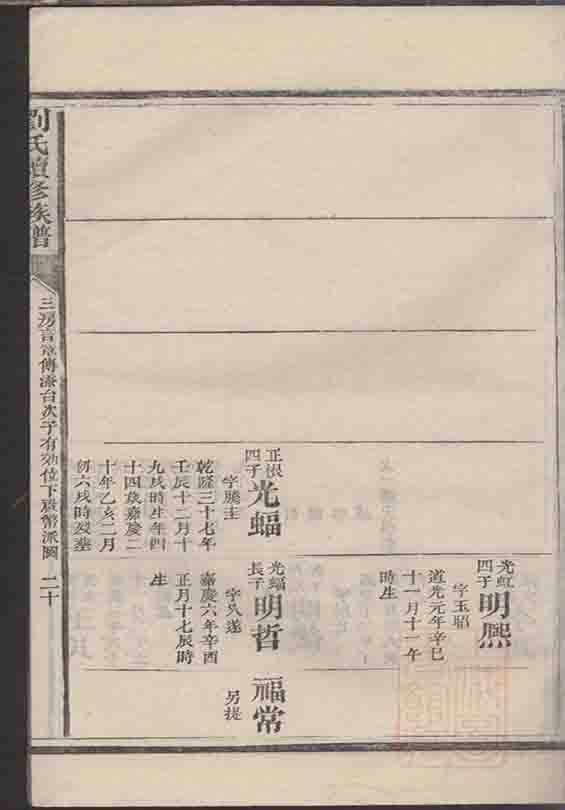 光虹四子明熙
字玉昭
道光元年辛巳
十一月十一午
時生
正恨四子光蝠
字騰圭
乾隆三十七年
壬辰十二月十
九戌時生年四
十四歲嘉慶二
十年乙亥二月
初六戌時歿葬
光蝠長子明哲
字久遂
嘉慶六年辛酉
正月十七辰時
生
福常
另提
劉氏續修族譜
三房言章傳添台次子有効位下 派圖 二十